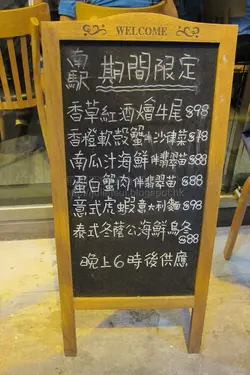 WELCOME
南馭 期間限定
香草紅酒燴牛尾 $98
香橙軟殼蟹伴沙律菜 $78
南瓜汁海鮮伴翡翠苗 $88
蛋白蟹肉伴翡翠苗 $88
意式虎蝦意大利麵 $98
泰式冬蔭公海鮮烏冬 $88
晚上6時後供應